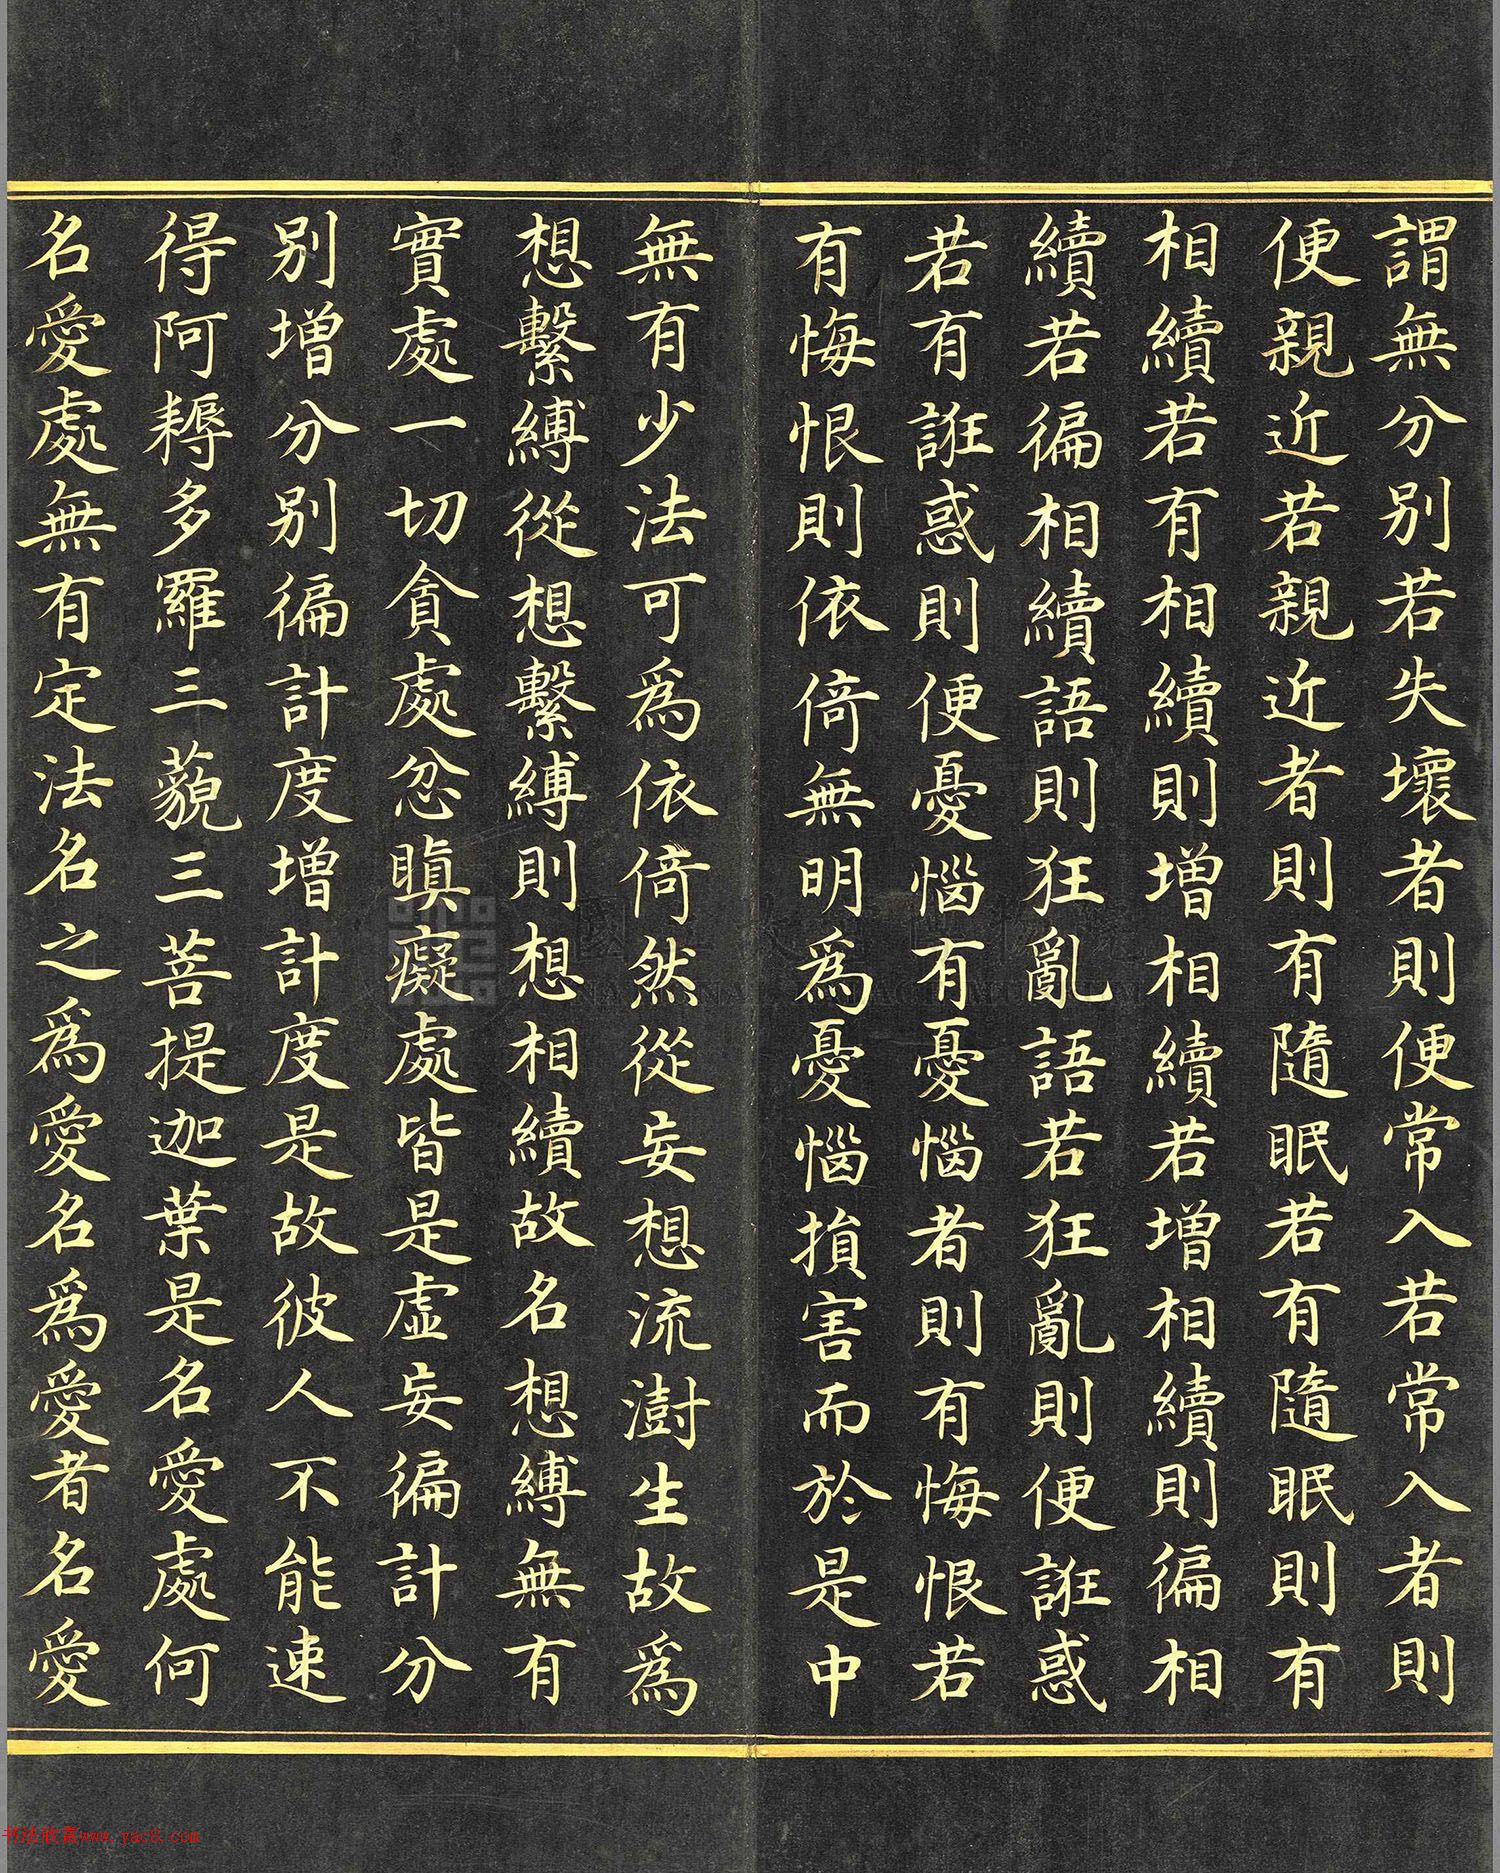 謂無分別若失壞者則便常入若常入者則
便親近若親近者則有隨眠若有隨眠則有
相續若有相續則增相續若增相續則徧相
續若徧相續語則狂亂語若狂亂則便誑惑
若有誑惑則便憂惱有憂惱者則有悔恨若
有悔恨則依倚無明為憂惱損害而於是中
無有少法可為依倚然從妄想流澍生故為
想繫縛從想繫縛則想相續故名想縛無有
實處一切貪處忿瞋癡處皆是虛妄徧計分
別增分別徧計度增計度是故彼人不能速
得阿耨多羅三藐三菩提迦葉是名愛處何
名愛處無有定法名之為愛名為愛者名愛
NATIONAL PALACE MUSEUM
书法欣赏www.yac8.com